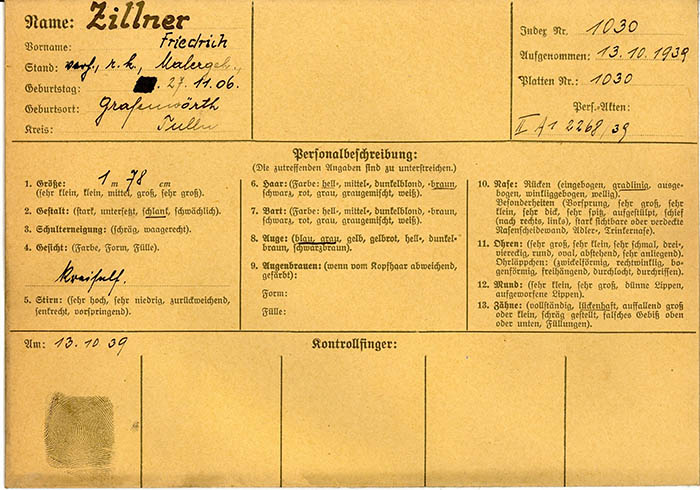 Name: Zillner
Vorname: Friedrich
Stand: verh., r.k., Malergeh.,
Geburtstag: 27.11.06.
Geburtsort: Grafenwörth
Kreis: Tulln
Index Nr. 1030
Aufgenommen: 13.10.1939
Platten Nr.: 1030
Pers.-Akten:
II A1 2268/39
Personalbeschreibung:
(Die zutreffenden Angaben sind zu unterstreichen.)
1. Größe: 1 m 78 cm
(sehr klein, klein, mittel, groß, sehr groß).
2. Gestalt: (stark, untersetzt, schlank, schwächlich).
3. Schulterneigung: (schräg, waagerecht).
4. Gesicht: (Farbe, Form, Fülle).
5. Stirn: (sehr hoch, sehr niedrig, zurückweichend,
senkrecht, vorspringend).
6. Haar: (Farbe: hell-, mittel-, dunkelblond, -braun,
schwarz, rot, grau, graugemischt, weiß).
7. Bart: (Farbe: hell-, mittel-, dunkelblond, -braun,
schwarz, rot, grau, graugemischt, weiß).
8. Auge: (blau, grau, gelb, gelbrot, hell-, dunkel-
braun, schwarzbraun).
9. Augenbrauen: (wenn vom Kopfhaar abweichend,
gefärbt):
Form:
Fülle:
10. Nase: Rücken (eingebogen, gradlinig, ausge-
bogen, winkliggebogen, wellig).
Besonderheiten (Vorsprung, sehr groß, sehr
klein, sehr dick, sehr spitz, aufgestülpt, schief
(nach rechts, links), stark sichtbare oder verdeckte
Nasenscheidewand, Adler-, Trinkernase).
11. Ohren: (sehr groß, sehr klein, sehr schmal, drei-,
viereckig, rund, oval, abstehend, sehr anliegend).
Ohrläppchen: (zwickelförmig, rechtwinklig, bo-
genförmig, freihängend, durchlocht, durchrissen).
12. Mund: (sehr klein, sehr groß, dünne Lippen,
aufgeworfene Lippen).
13. Zähne: (vollständig, lückenhaft, auffallend groß
oder klein, schräg gestellt, falsches Gebiß oben
oder unten, Füllungen).
Am: 13.10.39
Kontrollfinger: